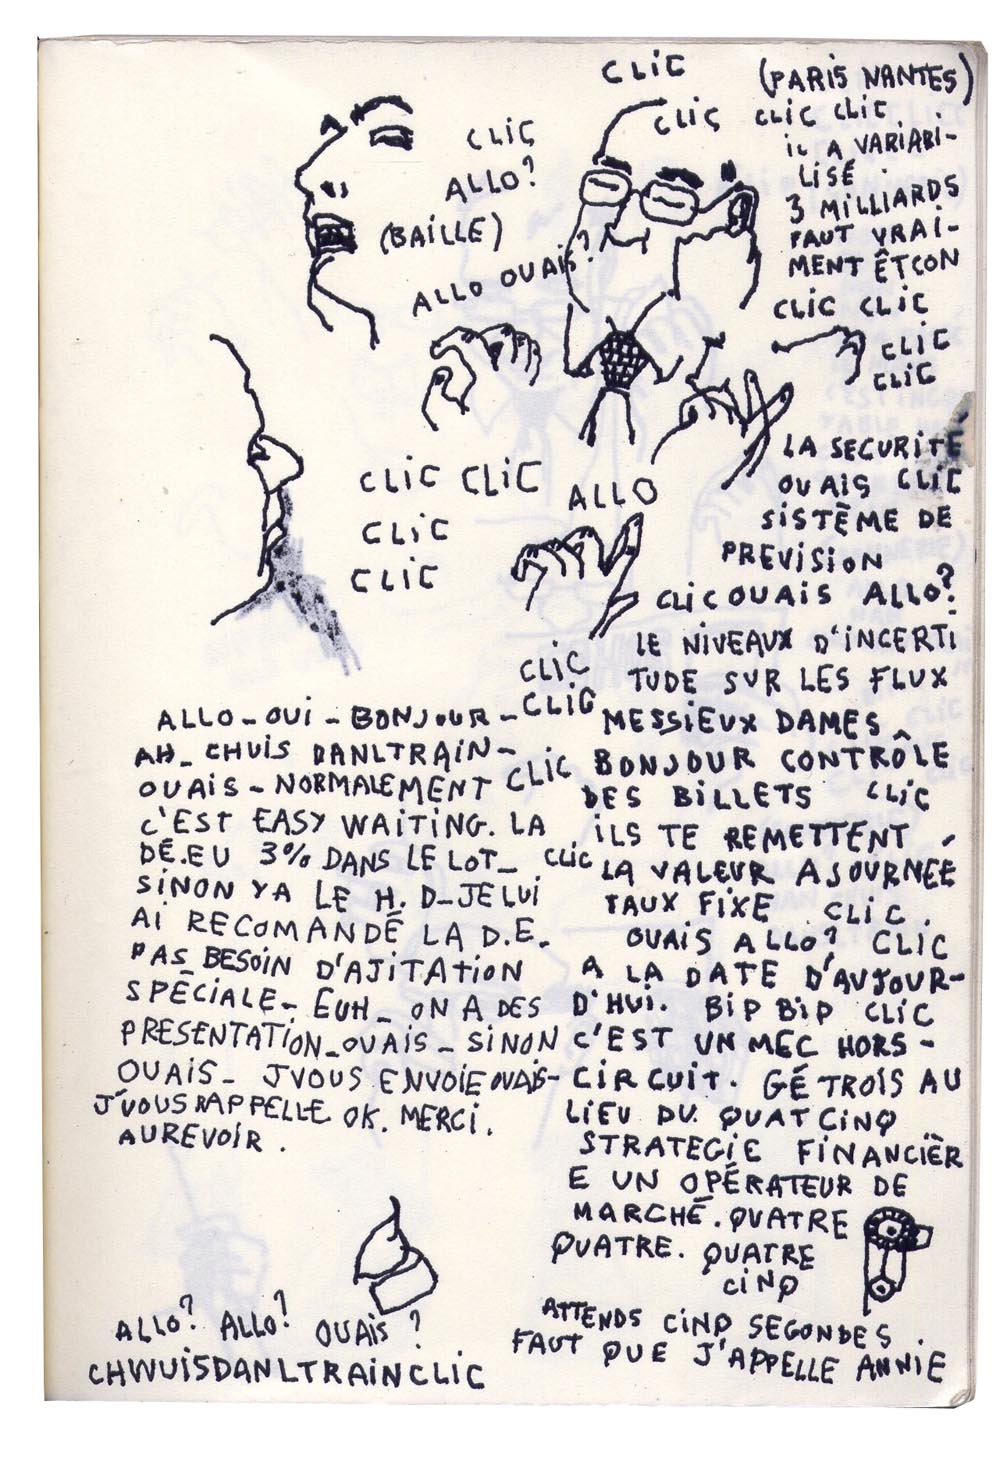 CLIC
(PARIS NANTES)
CLIC CLIC CLIC
CLIC
ALLO?
(BAILLE)
ALLO OUAIS?
IL A VARIABI-
LISÉ.
3 MILLIARDS
FAUT VRAI-
MENT ÊTCON
CLIC CLIC
CLIC
CLIC
CLIC CLIC
CLIC
CLIC
ALLO
LA SECURITÉ
OUAIS CLIC
SISTÈME DE
PREVISION
CLIC OUAIS ALLO?
LE NIVEAUX D'INCERTI
TUDE SUR LES FLUX
CLIC
CLIC
ALLO_OUI_BONJOUR_
AH_CHUIS DANLTRAIN_
OUAIS_NORMALEMENT
C'EST EASY WAITING. LA
DÉ.EU 3% DANS LE LOT_
SINON YA LE H.D_JE LUI
AI RECOMANDÉ LA D.E.
PAS BESOIN D'AJITATION
SPÉCIALE_EUH_ON A DES
PRESENTATION_OUAIS_SINON
OUAIS_ JVOUS ENVOIE OUAIS-
J'VOUS RAPPELLE OK. MERCI.
AUREVOIR.
CLIC
CLIC
MESSIEUX DAMES
BONJOUR CONTRÔLE
DES BILLETS CLIC
ILS TE REMETTENT
LA VALEUR AJOURNÉE
TAUX FIXE CLIC.
OUAIS ALLO? CLIC
A LA DATE D'AUJOUR-
D'HUI. BIP BIP CLIC
C'EST UN MEC HORS-
CIRCUIT. GÉ TROIS AU
LIEU DU QUATCINQ
STRATEGIE FINANCIÈR
E UN OPÉRATEUR DE
MARCHÉ. QUATRE
QUATRE. QUATRE
CINQ
ATTENDS CINQ SEGONDES.
FAUT QUE J'APPELLE ANNIE
ALLO? ALLO? OUAIS?
CHWUISDANLTRAINCLIC